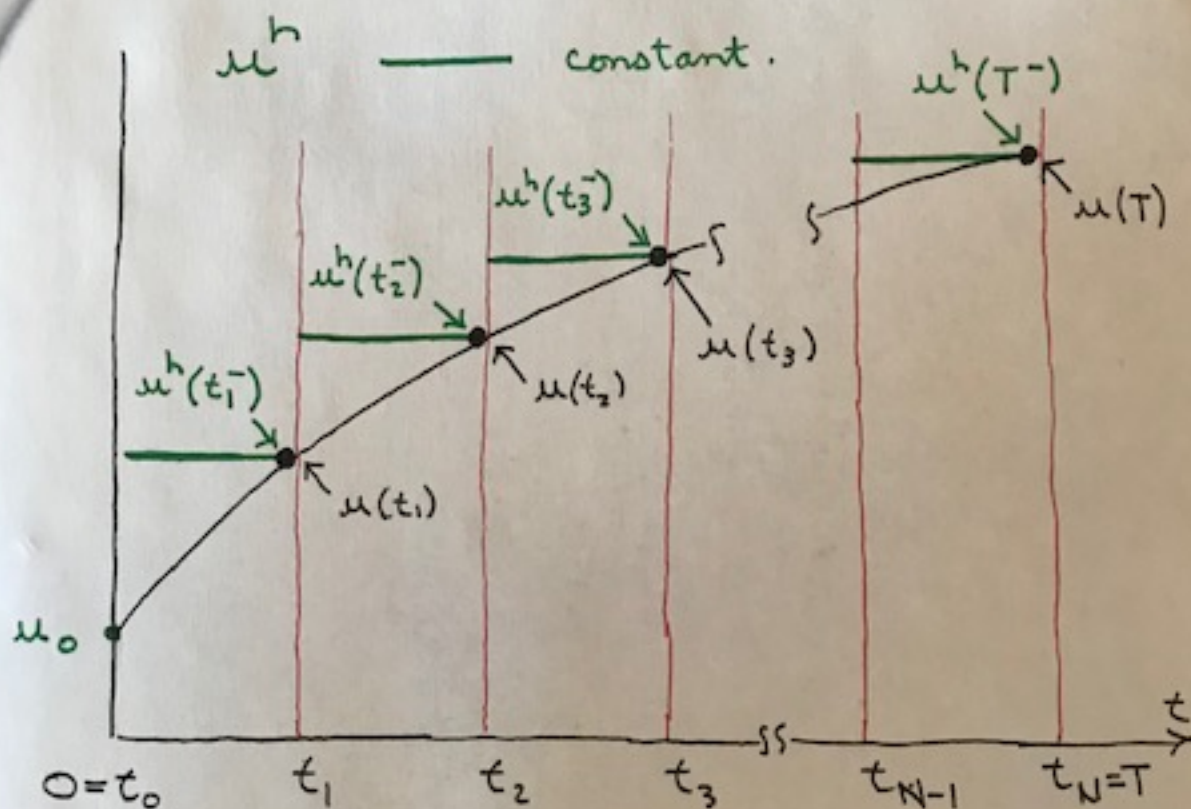 uʰ constant.
uʰ(T⁻)
u(T)
uʰ(t₃⁻)
u(t₃)
uʰ(t₂⁻)
u(t₂)
uʰ(t₁⁻)
u(t₁)
u₀
t
0=t₀ t₁ t₂ t₃ t_N-1 t_N=T